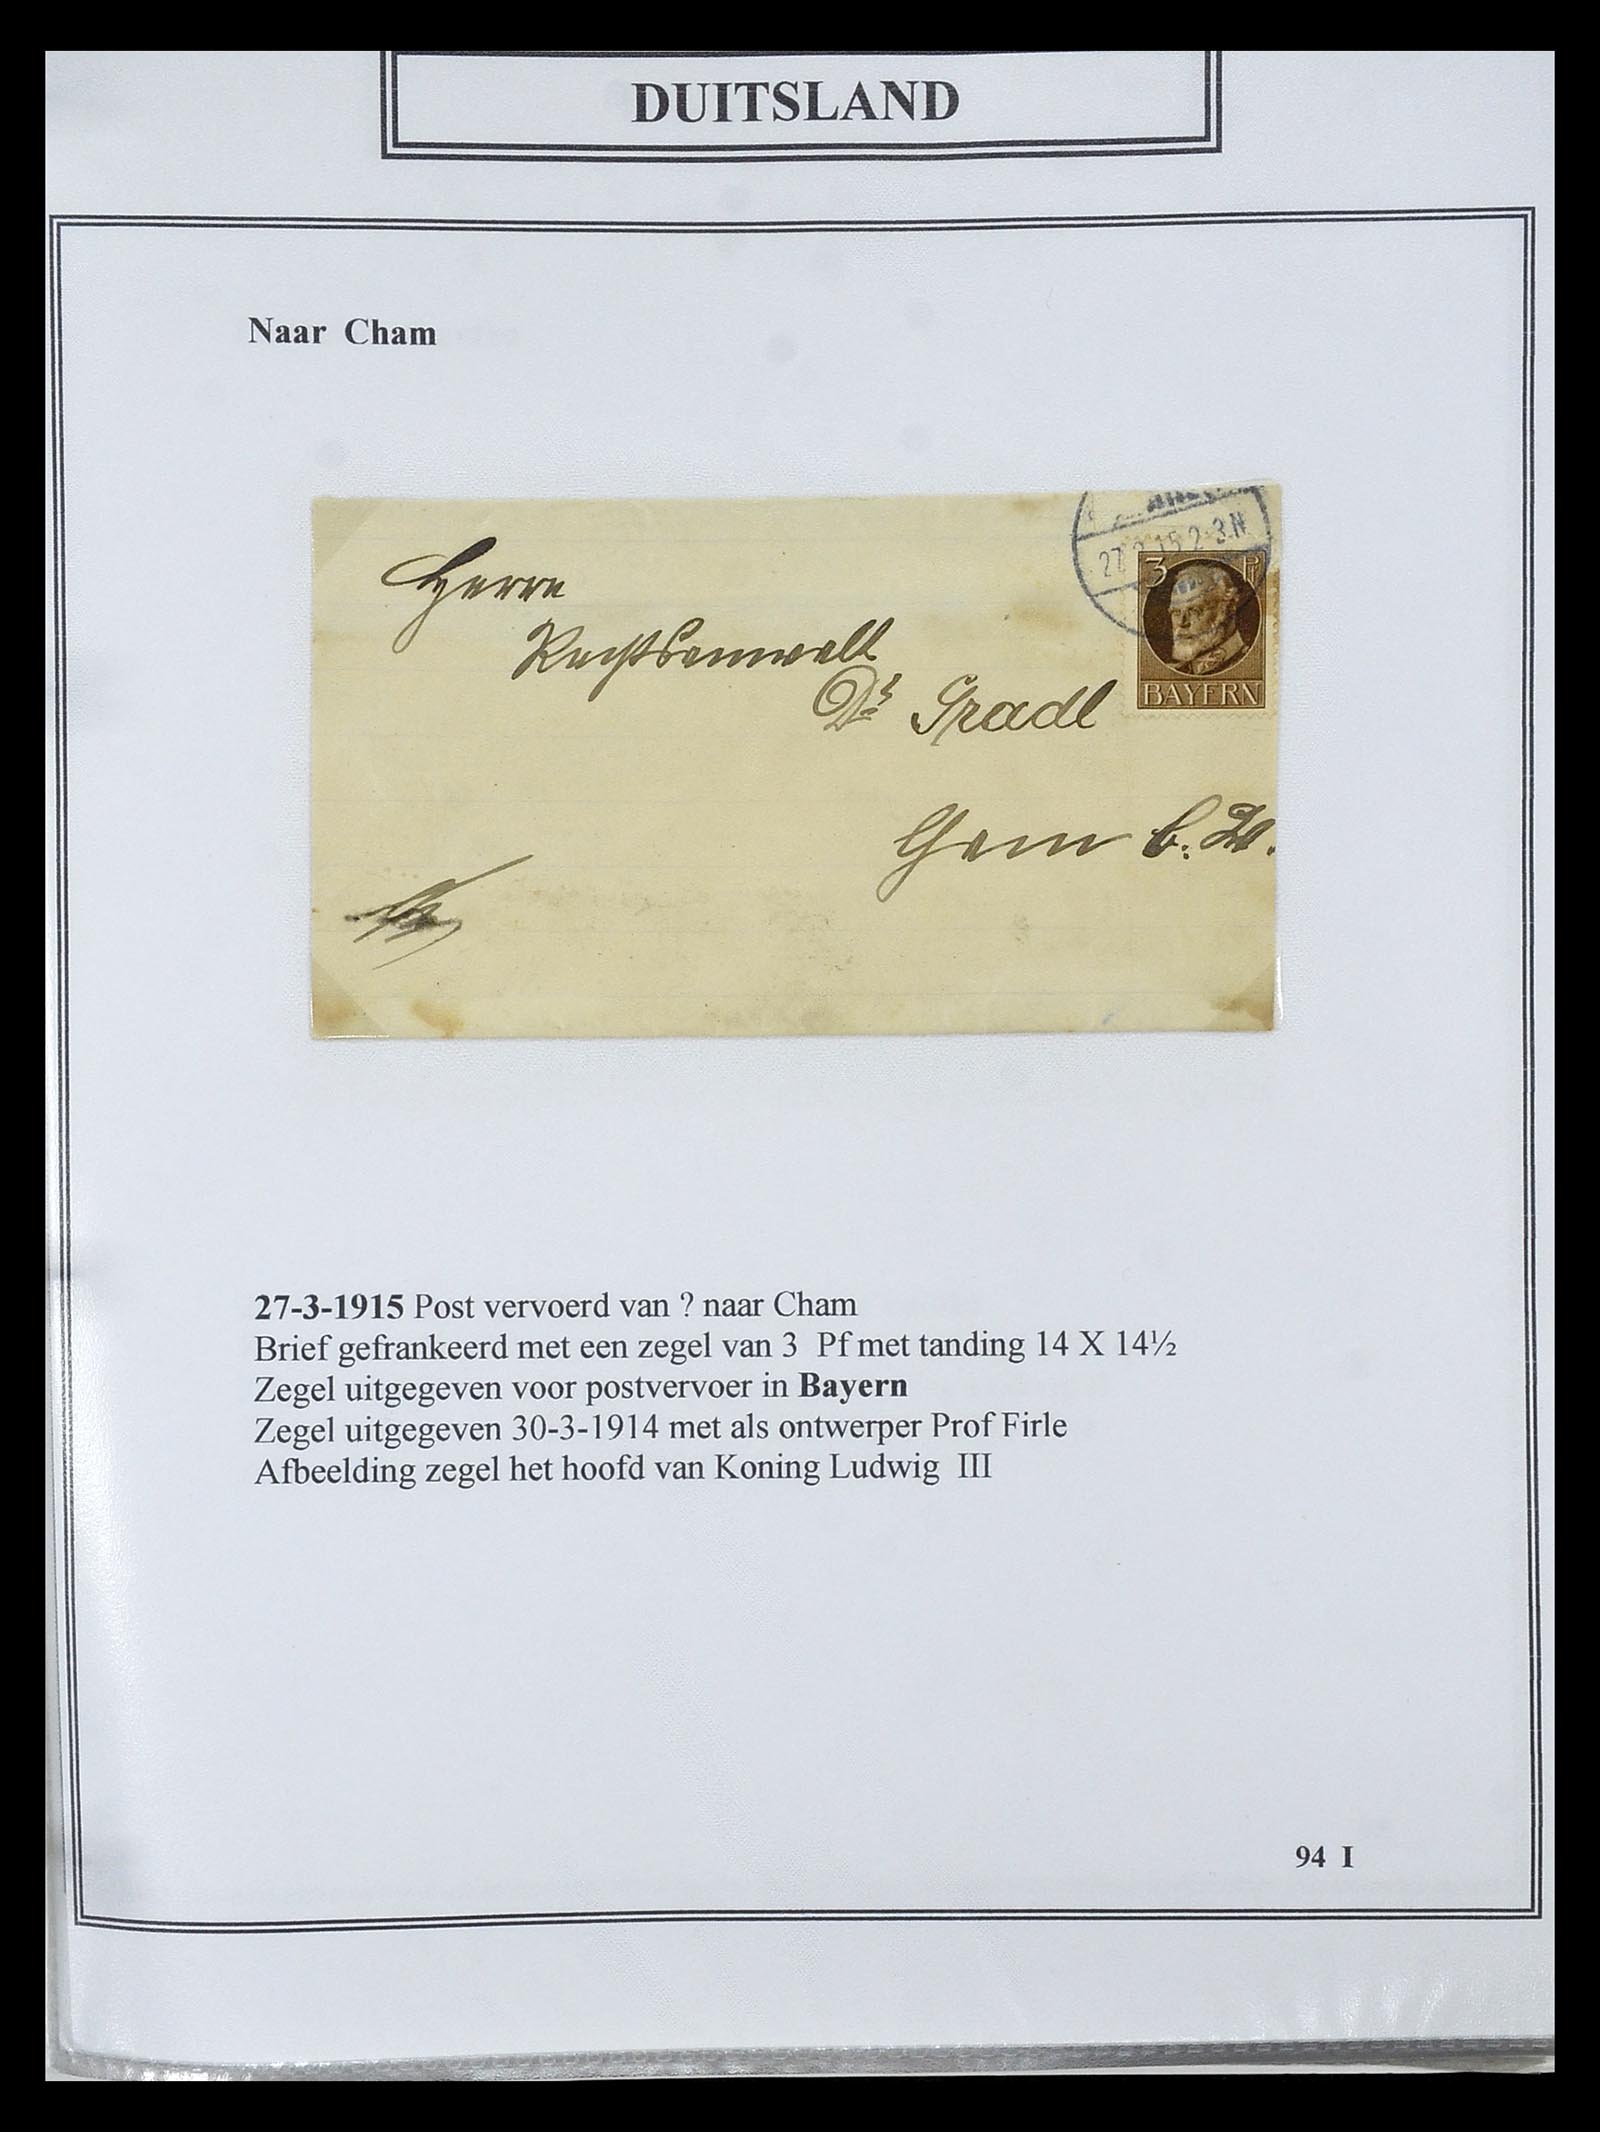 DUITSLAND
Naar Cham
27 3 15 2-3 N
3 Pf
BAYERN
Herrn
Rechtsanwalt
Dr Gradl
Cham b. W.
27-3-1915 Post vervoerd van ? naar Cham
Brief gefrankeerd met een zegel van 3 Pf met tanding 14 X 14½
Zegel uitgegeven voor postvervoer in Bayern
Zegel uitgegeven 30-3-1914 met als ontwerper Prof Firle
Afbeelding zegel het hoofd van Koning Ludwig III
94 I